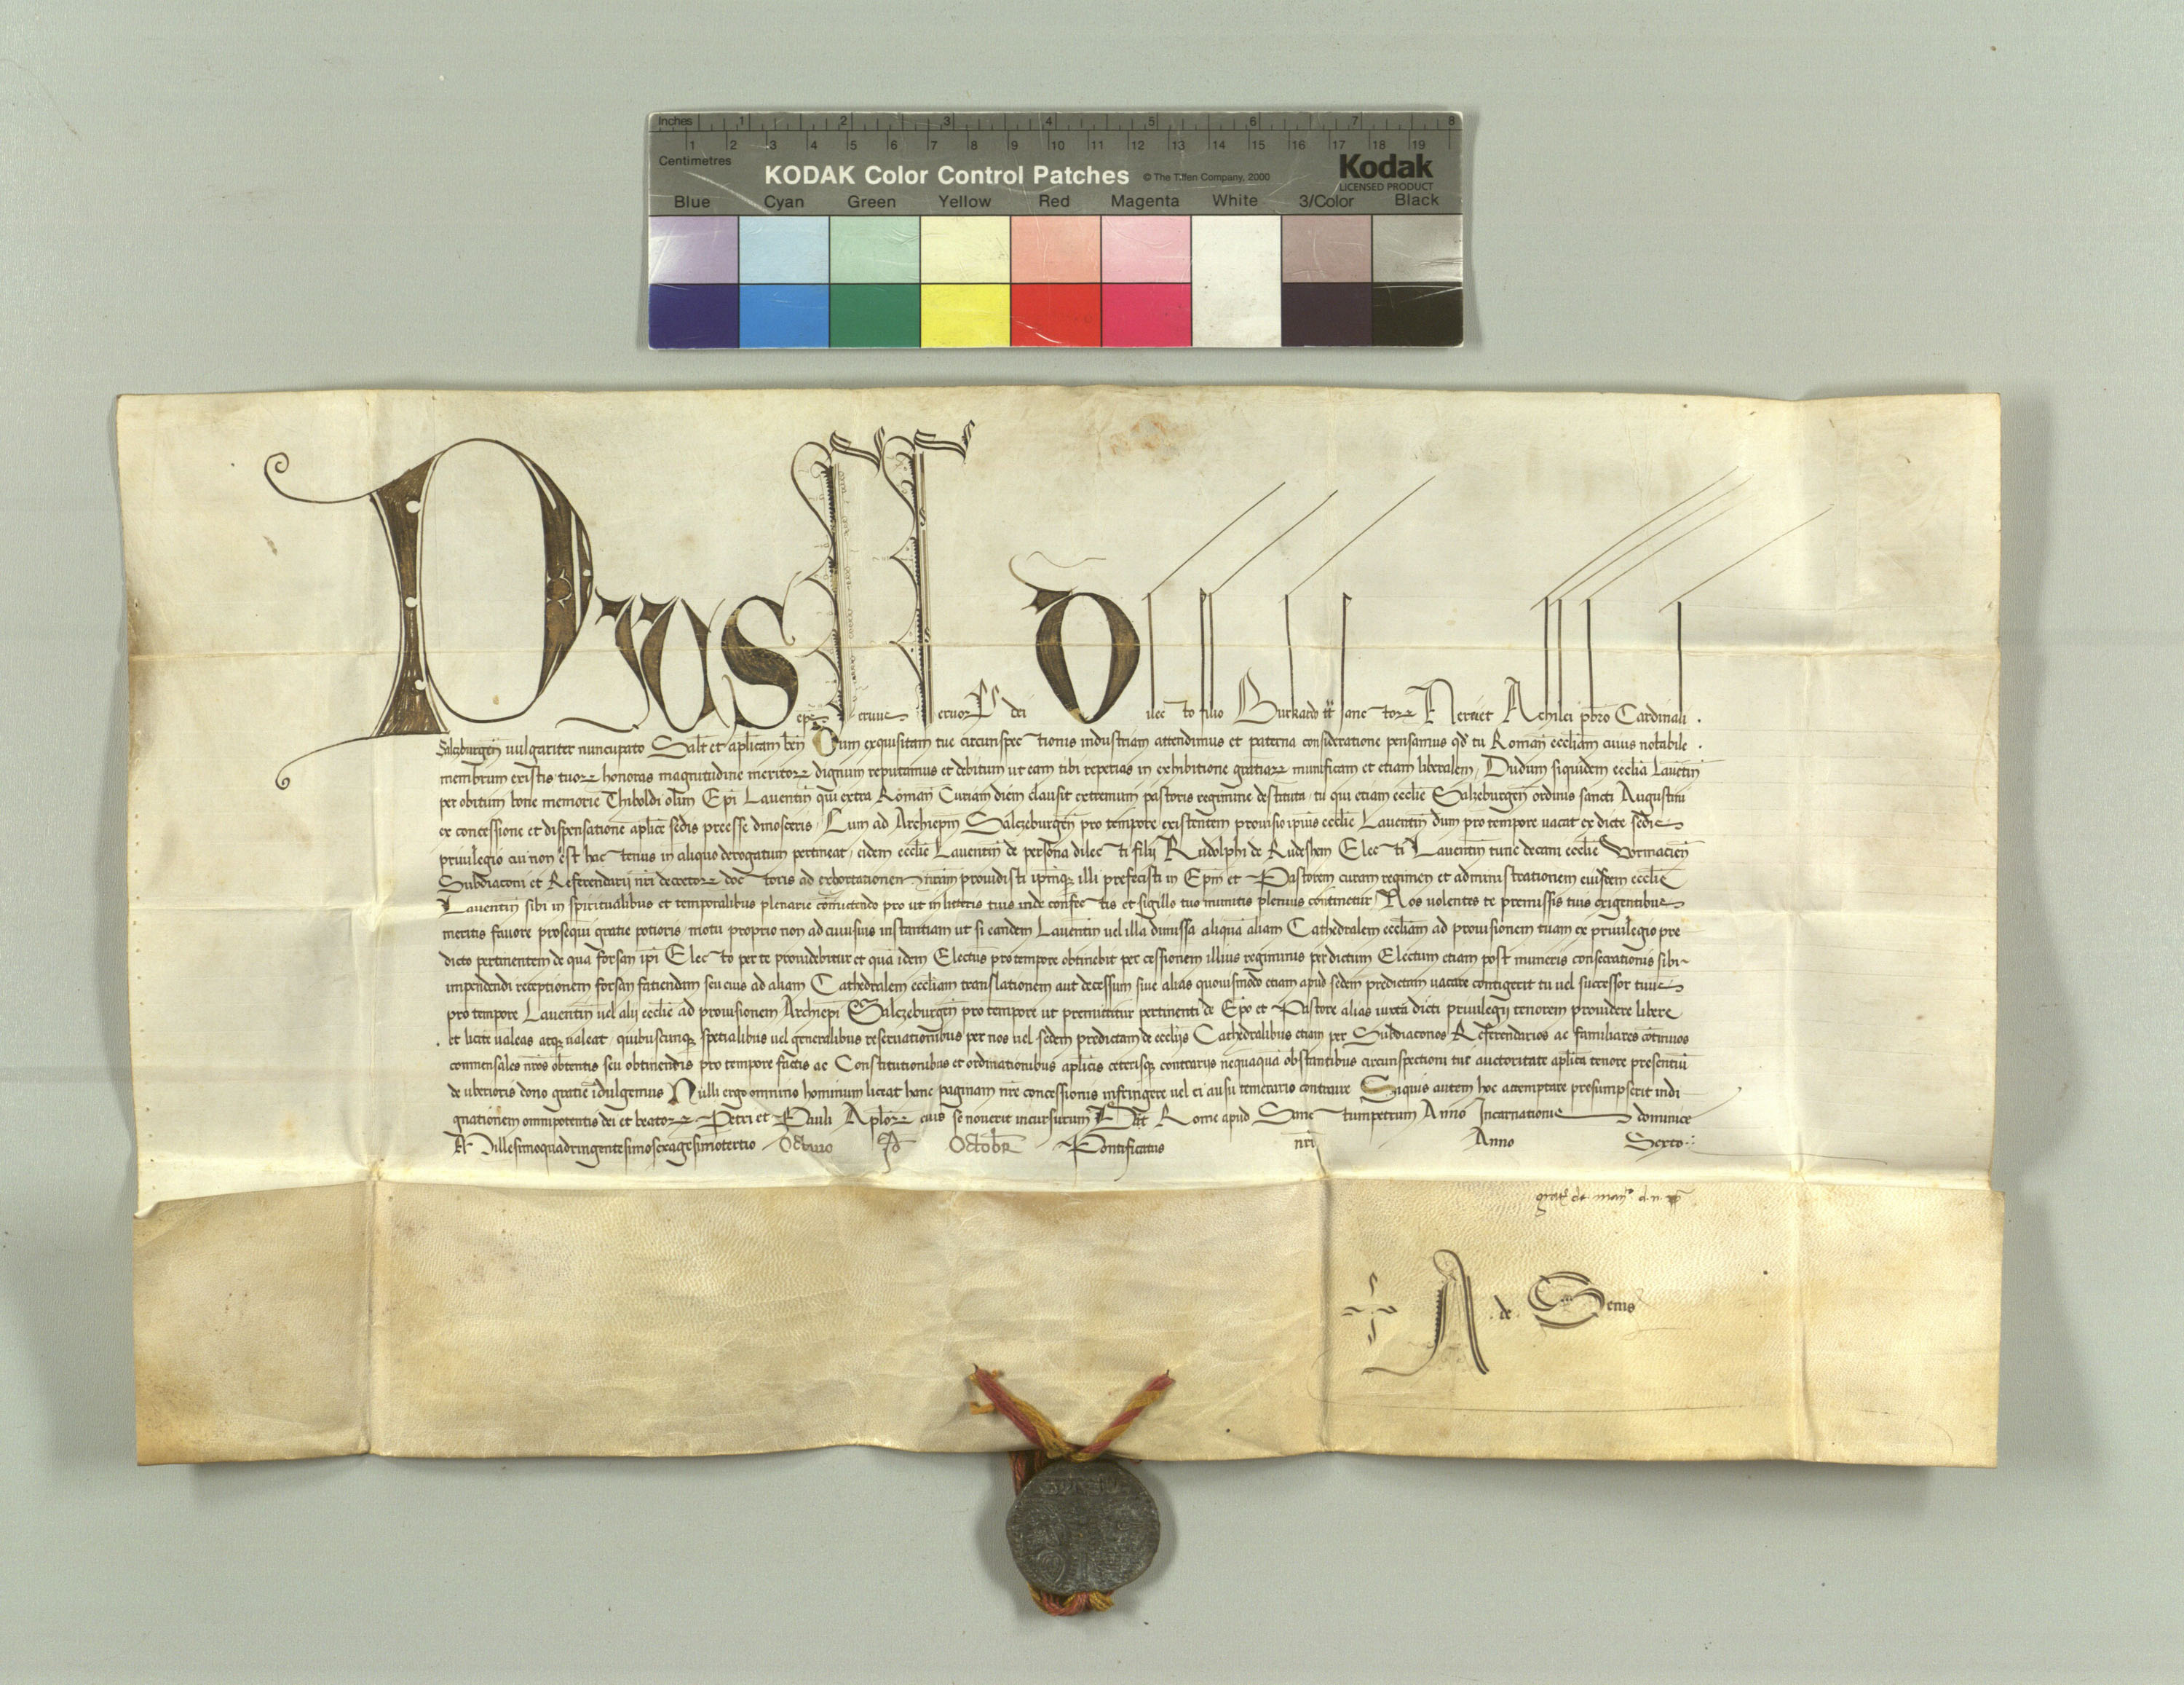 Inches 1 2 3 4 5 6 7 8
Centimetres 1 2 3 4 5 6 7 8 9 10 11 12 13 14 15 16 17 18 19
KODAK Color Control Patches © The Tiffen Company, 2000 Kodak
LICENSED PRODUCT
Blue Cyan Green Yellow Red Magenta White 3/Color Black
Pius ep̄s servus servorꝝ dei Dilecto filio Burkardo tt̄ sanctorꝝ Nerei et Achilei pb̄ro Cardinali
Salzburgeñ vulgariter nuncupato Salt̄ et apl̄icam ben̄ Dum exquisitam tue circunspectionis industriam attendimus et paterna consideratione pensamus qđ tu Romañ eccl̄iam cuius notabile
membrum existis tuorꝝ honoras magnitudine meritorꝝ dignum reputamus et debitum ut eam tibi reperias in exhibitione gratiarꝝ munificam et etiam liberalem, Dudum siquidem eccl̄ia Laventiñ
per obitum bone memorie Thiboldi olim Ep̄i Laventiñ qui extra Romañ Curiam diem clausit extremum pastoris regimine destituta, tu qui etiam eccl̄ie Salzeburgeñ ordinis sancti Augustini
ex concessione et dispensatione apl̄ice sedis preesse dinosceris, Cum ad Archiep̄m Salczeburgeñ pro tempore existentem provisio ip̄ius eccl̄ie Laventiñ dum pro tempore vacat ex dicte sedis
privilegio cui non est hactenus in aliquo derogatum pertineat, eidem eccl̄ie Laventiñ de persona dilecti filij Rudolphi de Rudeshem Electi Laventiñ tunc decani eccl̄ie Wormacieñ
Subdiaconi et Referendarij nr̄i decretorꝝ doctoris ad exhortationem nr̄am providisti ip̄mqꝫ illi prefecisti in Ep̄m et Pastorem curam regimen et administrationem eiusdem eccl̄ie
Laventiñ sibi in spiritualibus et temporalibus plenarie com̄ictendo pro ut in litteris tuis inde confectis et sigillo tuo munitis plenius continetur, Nos volentes te premissis tuis exigentibus
meritis favore prosequi gratie potioris, motu proprio non ad cuiusvis instantiam ut si eandem Laventiñ vel illa dimissa aliquā aliam Cathedralem eccl̄iam ad provisionem tuam ex privilegio pre
dicto pertinentem de qua forsan ip̄i Electo per te providebitur et quā idem Electus pro tempore obtinebit per cessionem illius regiminis per dictum Electum etiam post muneris consecrationis sibi
impendendi receptionem forsan fatiendam seu eius ad aliam Cathedralem eccl̄iam translationem aut decessum sive alias quovismodo etiam apud sedem predictam vacare contigerit tu vel successor tuus
pro tempore Laventiñ vel alij eccl̄ie ad provisionem Archiep̄i Salczeburgeñ pro tempore ut premictitur pertinenti de Ep̄o et Pastore alias iuxta dicti privilegij tenorem providere libere
et licite valeas atqꝫ valeat, quibuscunqꝫ spetialibus vel generalibus reservationibus per nos vel sedem predictam de eccl̄ijs Cathedralibus etiam per Subdiaconos Referendarios ac familiares cōtinuos
commensales nr̄os obtentis seu obtinendis pro tempore factis ac Constitutionibus et ordinationibus apl̄icis ceterisqꝫ contrarijs nequaquā obstantibus circunspectioni tue auctoritate apl̄ica tenore presentiū
de uberioris dono gratie īdulgemus Nulli ergo omnino hominum liceat hanc paginam nr̄e concessionis infringere vel ei ausu temerario contraire Siquis autem hoc attemptare presumpserit indi
gnationem omnipotentis dei et beatorꝝ Petri et Pauli Apl̄orꝝ eius se noverit incursurum Dat̄ Rome apud Sanctumpetrum Anno Incarnationis dominice
Millesimoquadringentesimosexagesimotertio Octavo Id̄ Octobr̄ Pontificatus nr̄i Anno Sexto
A de Senis